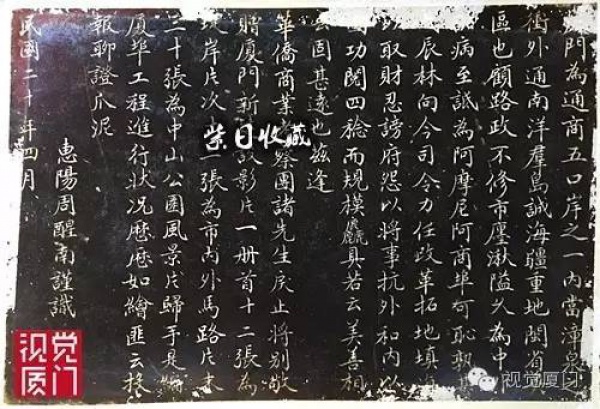 門為通商五口岸之一內當漳泉
衝外通南洋羣島誠海疆重地閩省
區也顧路政不修市廛湫隘久為中
病至誠為阿摩尼阿商埠可恥孰
辰林向今司令力任政革拓地填
以取財忍謗府怨以將事抗外和內以
功閱四稔而規模麤具若云美善相
云固甚遠也茲逢
華僑商業考察團諸先生戾止將別敬
贈廈門新設影片一冊首十二張為
堤岸片次一張為市內外馬路片末
二十張為中山公園風景片歸手是編
廈埠工程進行狀况歷歷如繪匪云投
報聊證爪泥
惠陽周醒南謹識
民國二十年四月
柴日收藏
视觉厦门
视觉厦门